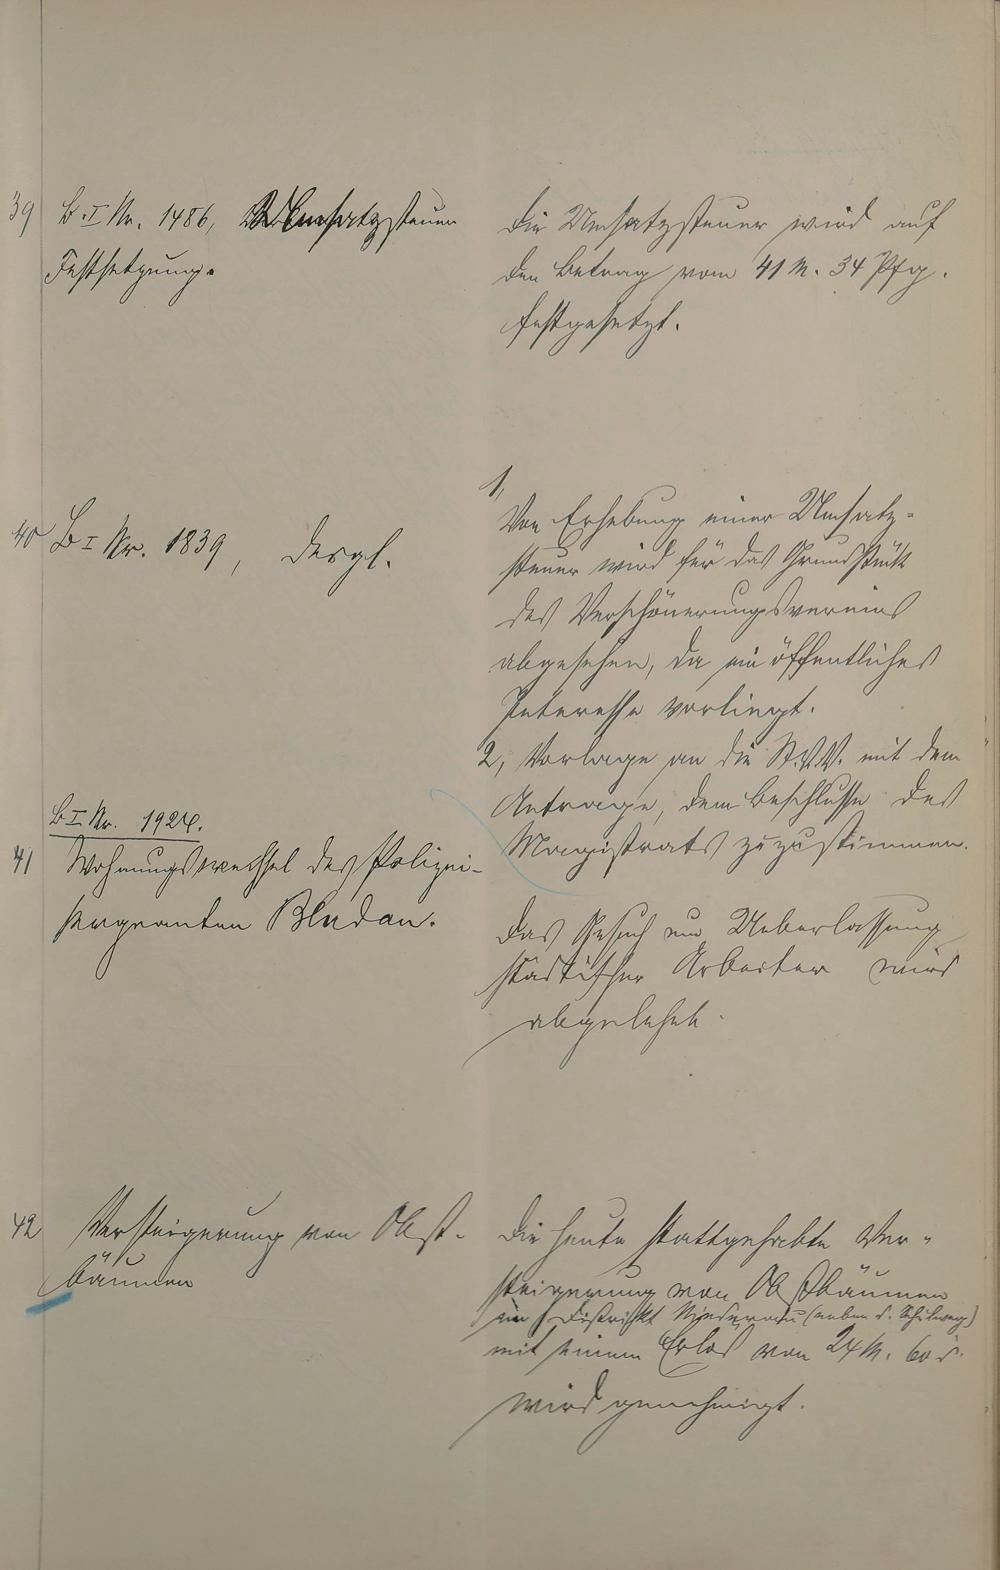 39 B.I Nr. 1486, Umsatzsteuer
Festsetzung.
Die Umsatzsteuer wird auf
den Betrag vom 41 M. 34 Pfg.
festgesetzt.
40 B I Nr. 1839, desgl.
1,
Von Erhebung einer Umsatz-
steuer wird für das Grundstück
des Verschönerungsvereins
abgesehen, da ein öffentliches
Interesse vorliegt.
2, Vorlage an die St.V.V. mit dem
Antrage, dem Beschlusse des
Magistrats zuzustimmen.
B I Nr. 1924.
41 Wohnungswechsel des Polizei-
sergeanten Bludau.
Das Gesuch um Ueberlassung
städtischer Arbeiter wird
abgelehnt.
42 Versteigerung von Obst-
bäumen
Die heute stattgehabte Ver-
steigerung von Obstbäumen
im Distrikt Niederau (neben d.
mit einem Erlös von 24 M. 60 d.
wird genehmigt.